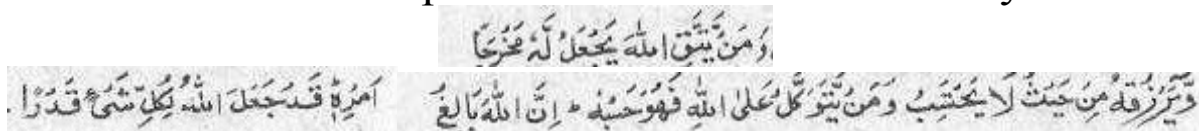 وَمَنْ يَّتَّقِ اللهَ يَجْعَلْ لَّهٗ مَخْرَجًا
وَّيَرْزُقْهُ مِنْ حَيْثُ لَا يَحْتَسِبُ وَمَنْ يَّتَوَكَّلْ عَلَى اللهِ فَهُوَ حَسْبُهٗ ط اِنَّ اللهَ بَالِغُ اَمْرِهٖ قَدْ جَعَلَ اللهُ لِكُلِّ شَىْءٍ قَدْرًا .